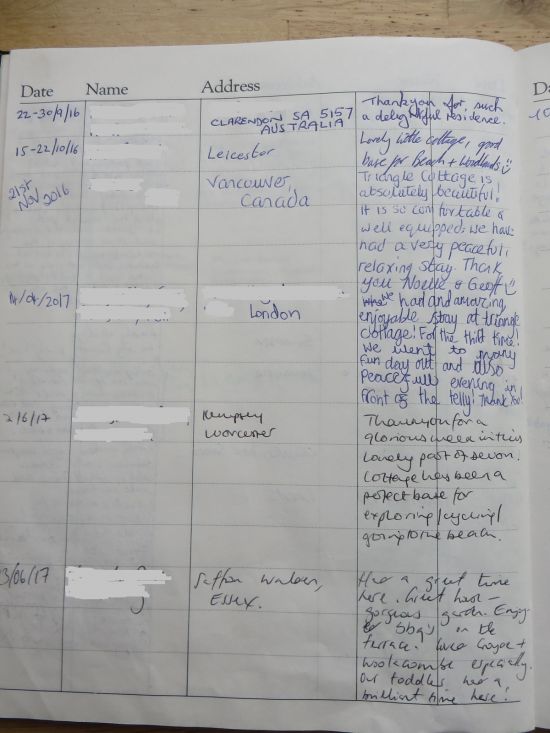 Date Name Address
22-30/9/16 CLARENDON SA 5157
AUSTRALIA
Thankyou for such
a delightful residence.
15-22/10/16 Leicester
Lovely little cottage, good
base for Beach + Woodlands
21st
Nov 2016
Vancouver,
Canada
Triangle Cottage is
absolutely beautiful!
It is so comfortable &
well equipped. We have
had a very peaceful,
relaxing stay. Thank
you Noelle & Geoff
14/04/2017 London
We had and amazing,
enjoyable stay at triangle
cottage! For the third time!
We went to many
fun day out and also
Peacefull evening in
front of the telly! Thank You!
2/6/17 Kempsey
Worcester
Thankyou for a
glorious week in this
lovely part of Devon.
Cottage has been a
perfect base for
exploring/cycling/
going to the beach.
3/06/17 Saffron Walden,
ESSEX.
Had a great time
here. Great host -
gorgeous garden. Enjoy
BBQ's on the
terrace. Loved Croyde +
Woolacombe especially.
Our toddler had a
brilliant time here!
D